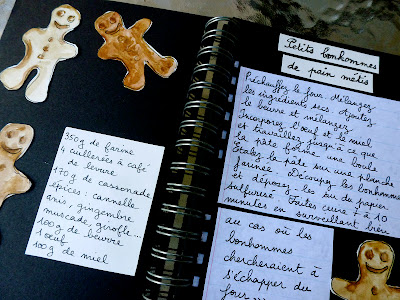 350g de farine
4 cuillerées à café
de levure
170g de cassonade
épices : cannelle
anis, gingembre
muscade, girofle...
100g de beurre
1 œuf
100g de miel
Petits bonhommes
de pain métis
Préchauffez le four. Mélangez
les ingrédients secs. Ajoutez
le beurre et mélangez.
Incorporez l'œuf et le miel
et travaillez jusqu'à ce que
la pâte forme une boule
Etalez la pâte sur une planche
farinée. Découpez les bonhommes
et déposez-les sur du papier
sulfurisé. Faites cuire 7 à 10
minutes en surveillant bien
au cas où les
bonhommes
chercheraient à
s'échapper du
four ...